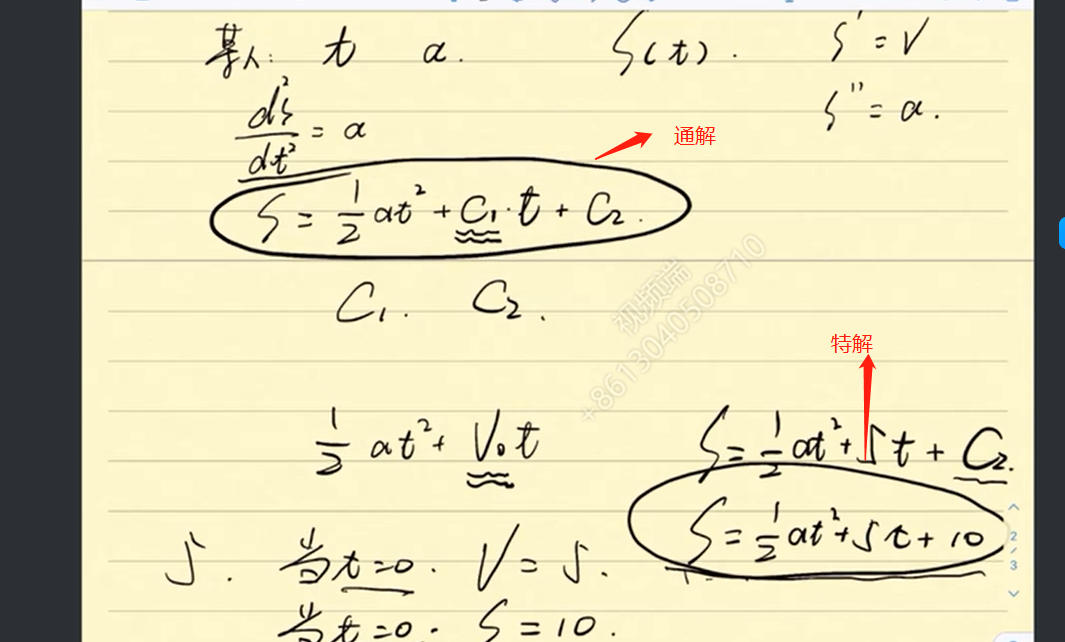 某人: t a. S(t). S' = V
S'' = a.
d²s/dt² = a
通解
S = 1/2 at² + C₁·t + C₂.
C₁. C₂.
视频端
+8613040508710
特解
1/2 at² + V₀t
S = 1/2 at² + 5t + C₂.
S = 1/2 at² + 5t + 10
5. 当t=0. V = 5.
当t=0. S = 10.
2
/
3